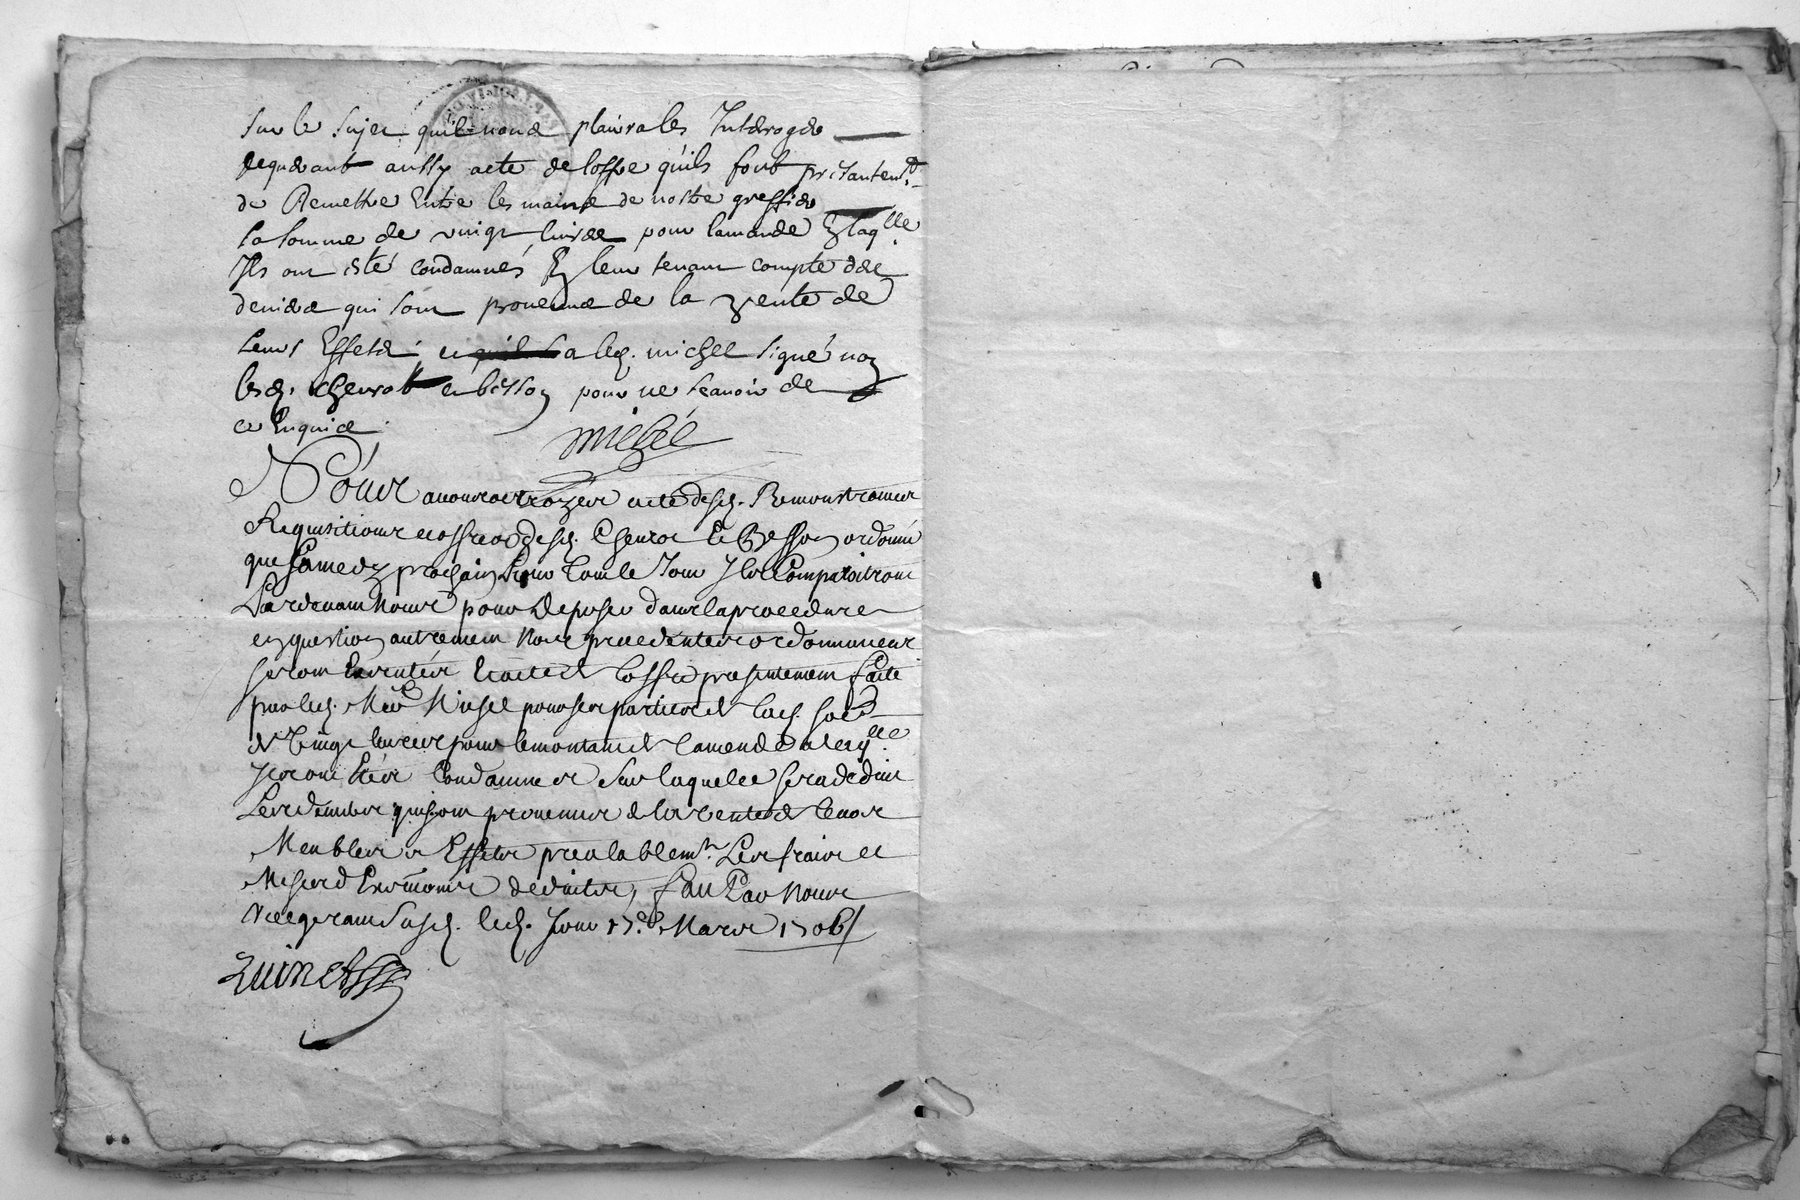 sur le sujet qu'il nous plaira les Interoger
Requerant aussy acte de loffre quils font presantem.t
de Remettre Entre les mains de nostre greffier
la somme de vingt livres pour lamande En laq.lle
Ils ont esté condamnés En leur tenant compte des
deniers qui sont provenus de la vente de
leurs Effets et a led. michel signé non
lesd. chevrot et besson pour ne scavoir de
ce Enquis
michel
Nous avons octroyer acte desd. Remonstrances
Requisitions et offres desd. Chevrot et Besson ordonné
que samedy prochain pour tout le Jour Ils Comparoitront
Pardevant Nous pour deposer dans la procedure
en question autrement Nos precedentes ordonnances
seront Executées Et acte de loffre presentement faite
par led. Michel pour ses parties de lad. so.e
de vingt livres pour le montant de lamende a laq.lle
Ils ont Etés Condamnes sur laquelle sera deduit
Les deniers qui sont provenus de la vente de leurs
Meubles et Effets prealablem.t Les frais et
deduites, fait Par Nous
Vicegerant susd. led. Jour 17.e Mars 1706